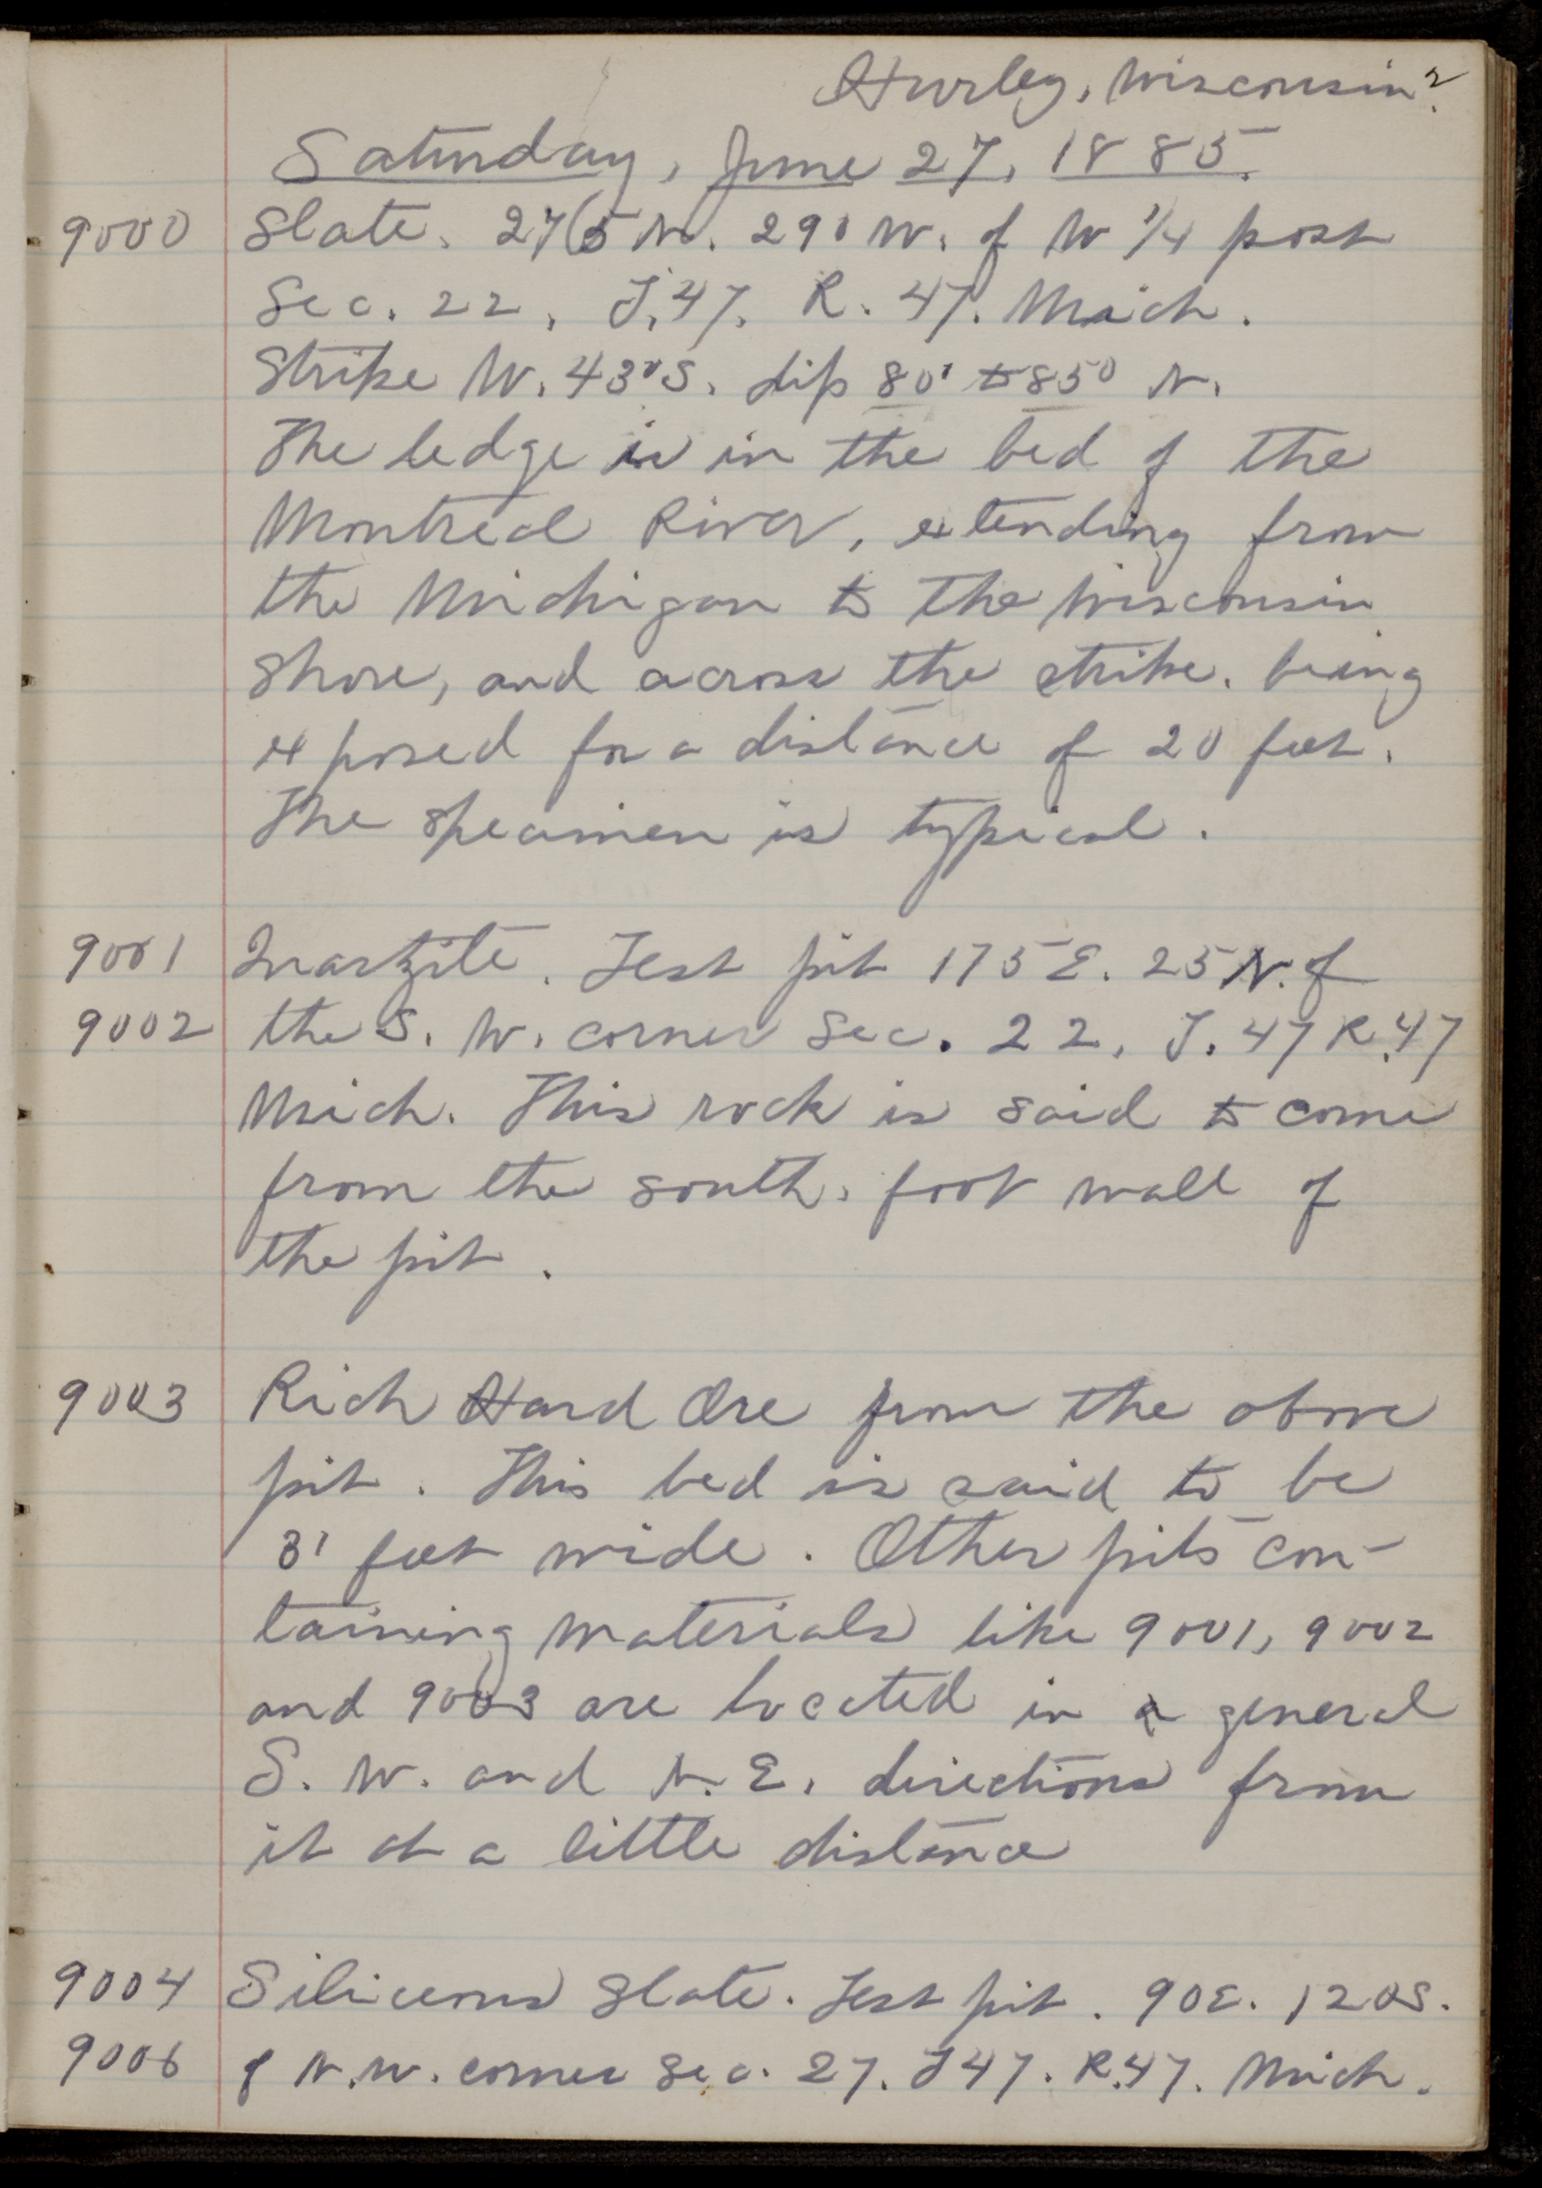 Hurley, Wisconsin?
Saturday, June 27, 1885.
9000 Slate. 2765 N. 290 W. of W 1/4 post
Sec. 22, T. 47. R. 47. Mich.
Strike W. 43° S. dip 80° to 85° N.
The ledge is in the bed of the
Montreal River, extending from
the Michigan to the Wisconsin
shore, and across the strike, being
exposed for a distance of 20 feet.
The specimen is typical.
9001 Quartzite. Test pit 175 E. 25 N. of
9002 the S. W. corner Sec. 22, T. 47 R. 47
Mich. This rock is said to come
from the south, foot wall of
the pit.
9003 Rich Hard Ore from the above
pit. This bed is said to be
31 feet wide. Other pits con-
taining materials like 9001, 9002
and 9003 are located in a general
S. W. and N. E. directions from
it at a little distance
9004 Silicious Slate. Test pit. 90 E. 120 S.
9006 of N. W. corner Sec. 27. T 47. R. 47. Mich.